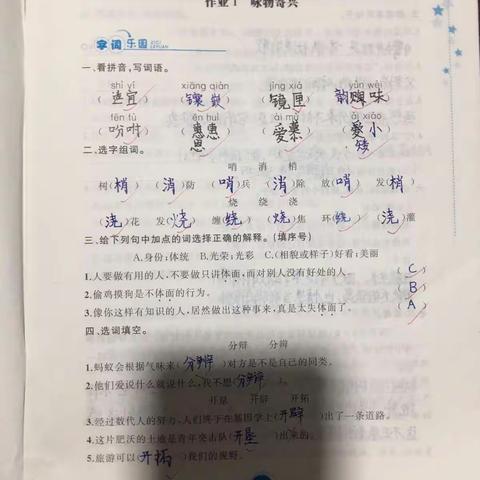 作业1 咏物寄兴
字词乐园 ZICI LEYUAN
一、看拼音,写词语。
shì yí xiāng qiàn jìng xiá yùn wèi
适宜 镶嵌 镜匣 韵味
fēn fù ēn huì ài mù ǎi xiǎo
吩咐 恩惠 爱慕 矮小
二、选字组词。
哨 消 梢
树(梢) (消)防 (哨)兵 (消)除 放(哨) 发(梢)
烧 绕 浇
(浇)花 发(烧) 缠(绕) (烧)焦 环(绕) (浇)灌
三、给下列句中加点的词选择正确的解释。(填序号)
A.身份;体统 B.光荣;光彩 C.(相貌或样子)好看;美丽
1.人要做有用的人,不要做只讲体面,而对别人没有好处的人。 (C)
2.偷鸡摸狗是不体面的行为。 (B)
3.像你这样有知识的人,居然做出这种事来,真是太失体面了。 (A)
四、选词填空。
分辩 分辨
1.蚂蚁会根据气味来(分辨)对方是不是自己的同类。
2.他们爱说什么就说什么,我不想(分辩)。
开垦 开辟 开拓
3.经过数代人的努力,人们终于在基因学上(开辟)出了一条道路。
4.这片肥沃的土地是青年突击队(开垦)出来的。
5.旅游可以(开拓)我们的视野。